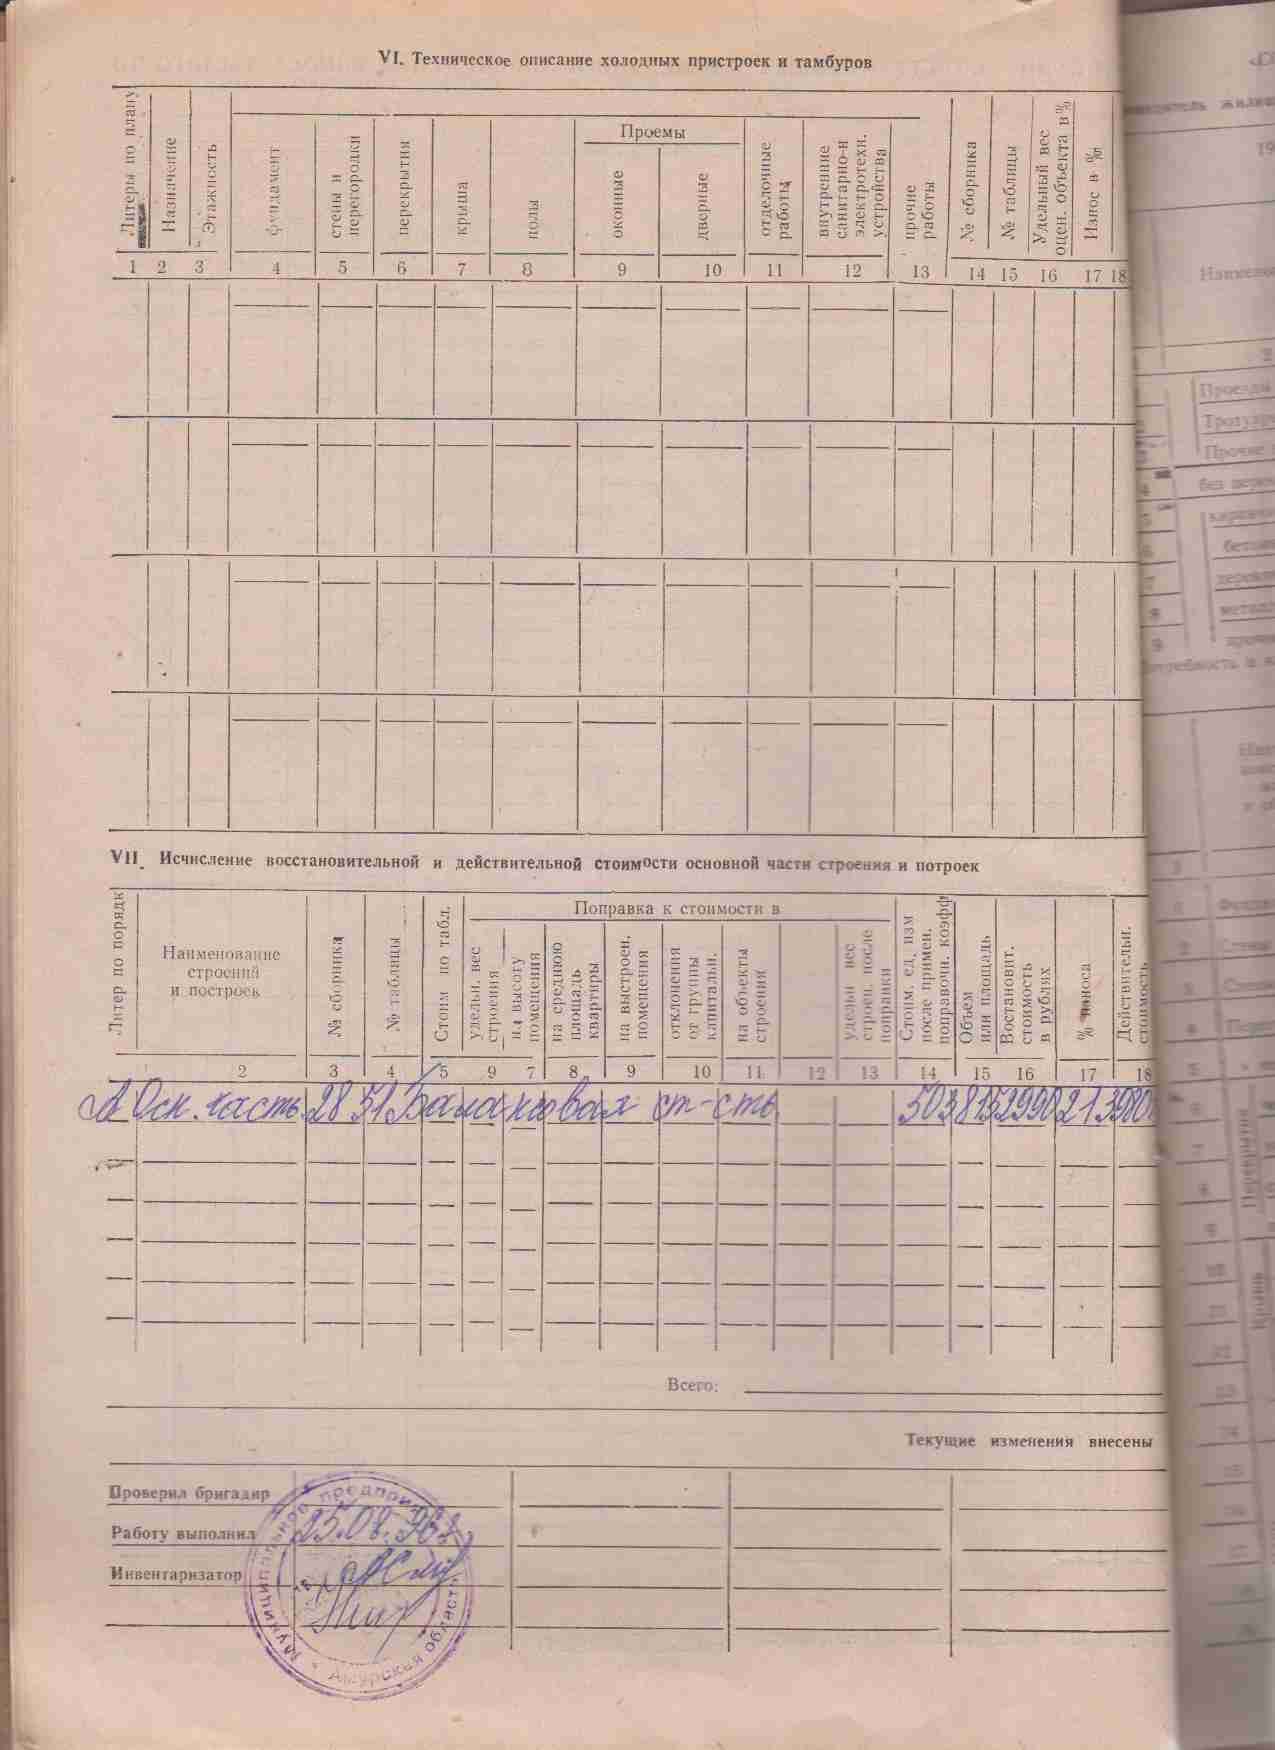 VI. Техническое описание холодных пристроек и тамбуров
Литеры по плану
Назначение
Этажность
фундамент
стены и перегородки
перекрытия
крыша
полы
Проемы
оконные
дверные
отделочные работы
внутренние санитарно-и электротехн. устройства
прочие работы
№ сборника
№ таблицы
Удельный вес оцен. объекта в %
Износ в %
1 2 3 4 5 6 7 8 9 10 11 12 13 14 15 16 17 18
VII. Исчисление восстановительной и действительной стоимости основной части строения и потроек
Литер по порядк
Наименование
строений
и построек
№ сборника
№ таблицы
Стоим по табл.
Поправка к стоимости в
удельн. вес строения
на высоту помещения
на среднюю площадь квартиры
на выстроен. помещения
отклонения от группы капитальн.
на объекты строения
удельн вес строен. после поправки
Стоим. ед. изм после примен. поправочн. коэфф
Объем или площадь
Востановит. стоимость в рублях
% износа
Действительн. стоимость
2 3 4 5 9 7 8 9 10 11 12 13 14 15 16 17 18
А Осн. часть 28 51 Балансовая ст-сть 503815299021398
Всего:
Текущие изменения внесены
Проверил бригадир
Работу выполнил 25.08.
Инвентаризатор
Муниципальное предприя
Амурская област
Проезды
Прочие